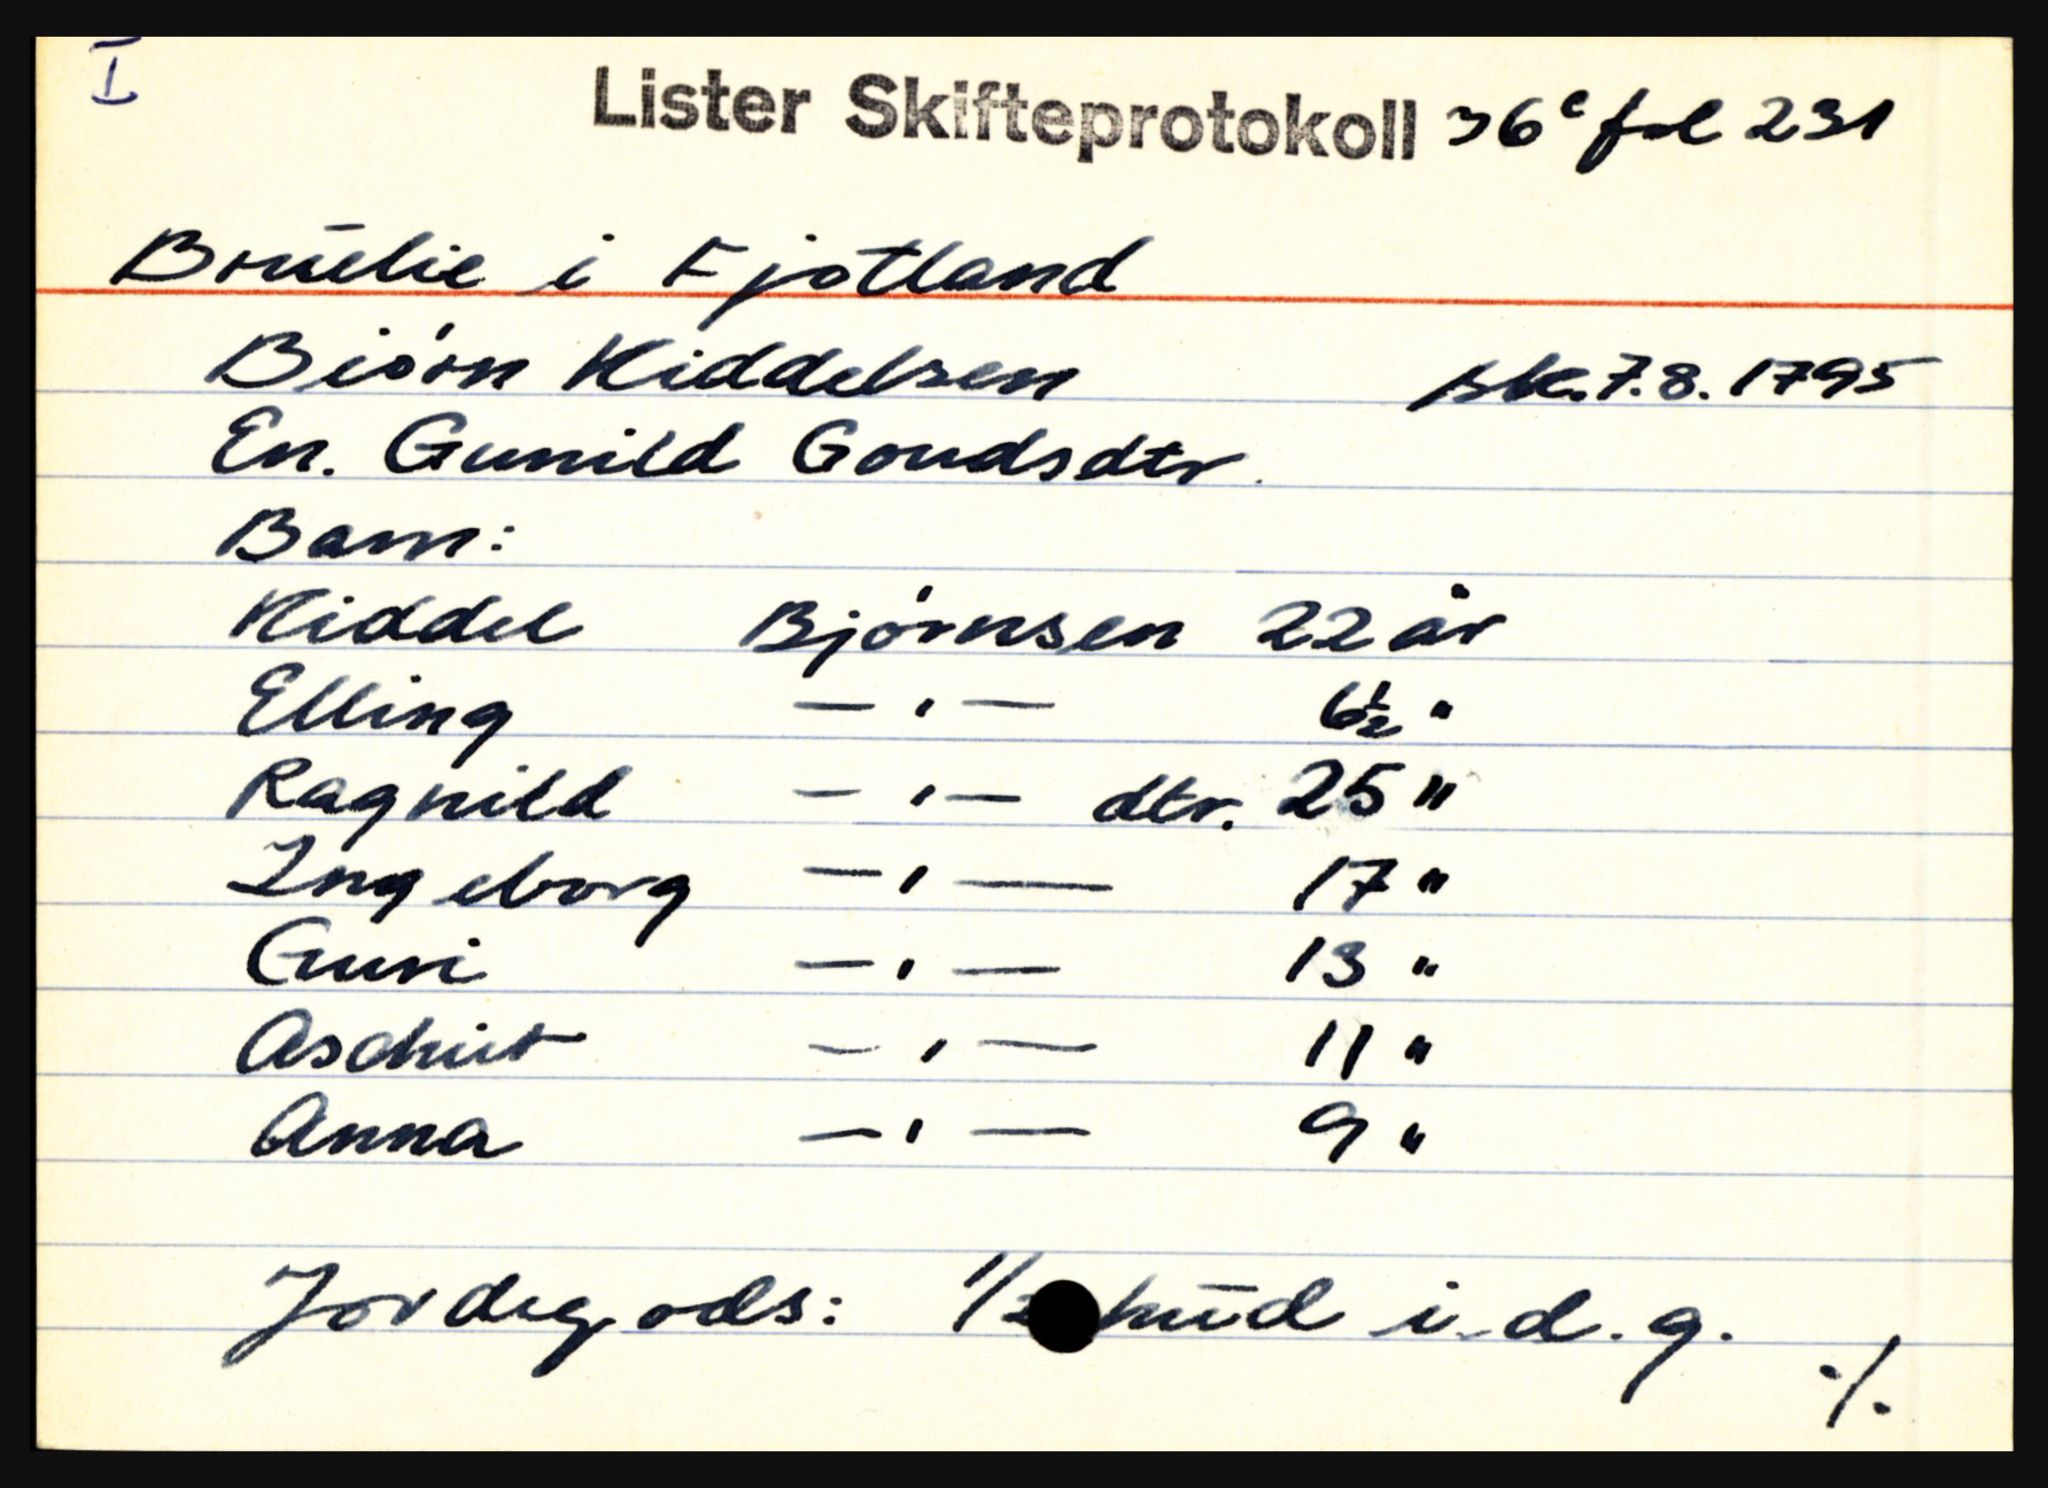 I
Lister Skifteprotokoll 36c fol 231
Bruelie i Fjotland
Biørn Kiddelsen sk. 7.8. 1795
En. Gunild Goudsdtr.
Barn:
Kiddel Bjørnsen 22 år
Elling — " — 6½ "
Ragnild — " — dtr. 25 "
Ingeborg — " — 17 "
Guri — " — 13 "
Aschut — " — 11 "
Anna — " — 9 "
Jordegods: 1/2 hud i d. g.
./.